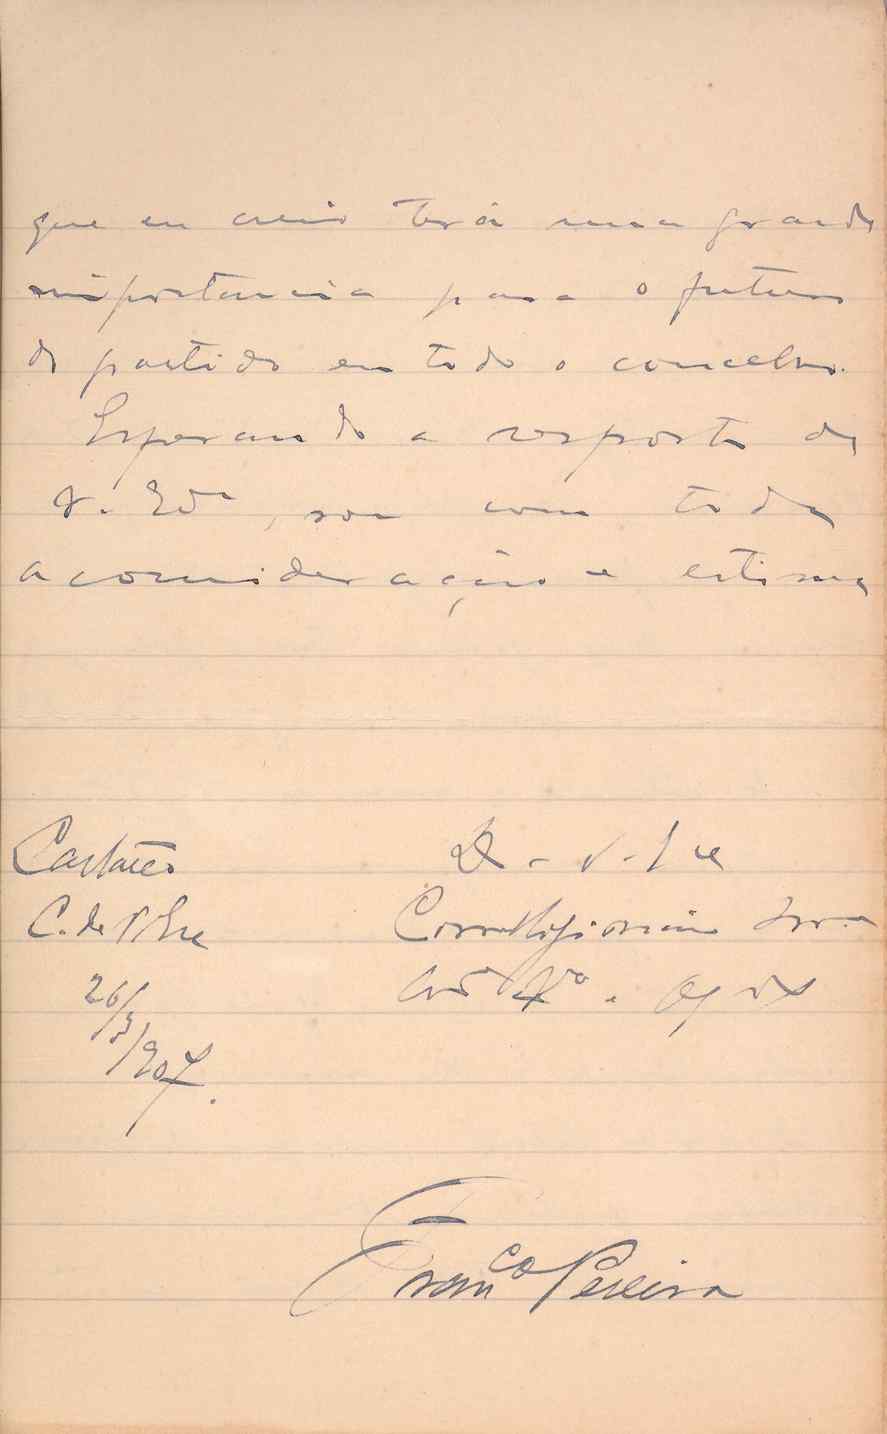 que eu creio terá uma grande
importancia para o futuro
do partido em todo o concelho.
Esperando a resposta de
V. Exª, sou com toda
a consideração e estima
De V. Exª
C. de Vide
Correligionario
26/3/907.
Franco Pereira